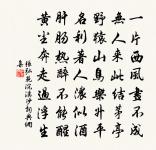 一片西風畫不成
無人來此結茅亭
野猿山鳥樂升平
名利著人濃似酒
肝腸熱醉不能醒
黃塵奔走過浮生
張弘范浣溪沙
集